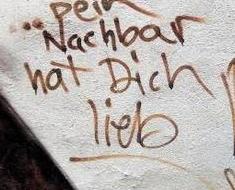 ... Dein
Nachbar
hat Dich
lieb